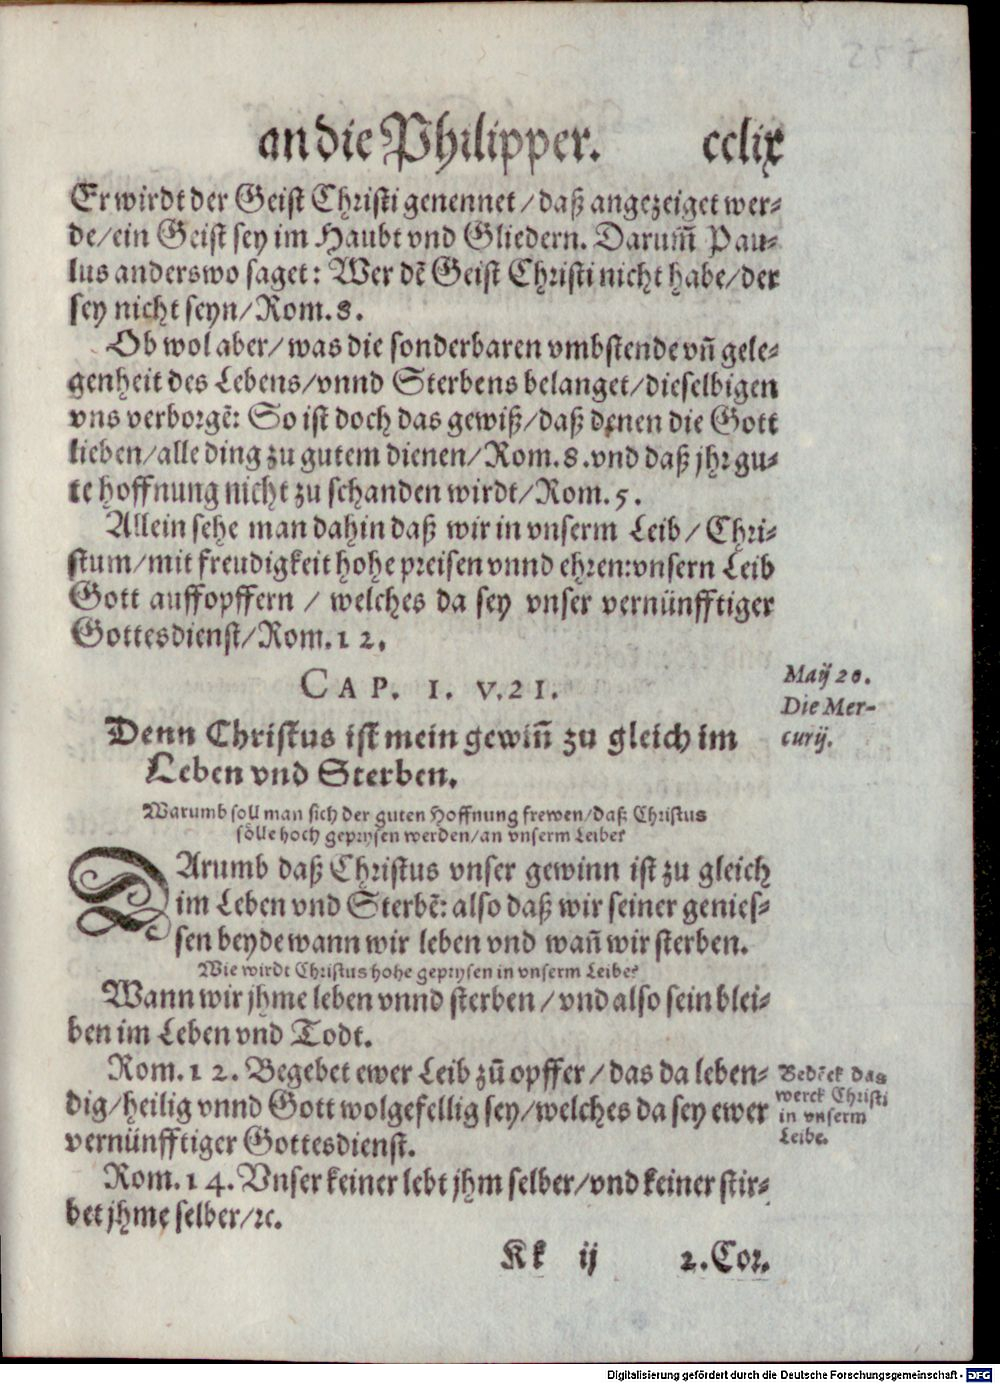 257
an die Philipper. cclix
Er wirdt der Geist Christi genennet / daß angezeiget wer-
de/ein Geist sey im Haubt vnd Gliedern. Darum̄ Pau-
lus anderswo saget: Wer dē Geist Christi nicht habe/der
sey nicht seyn/Rom.8.
Ob wol aber/was die sonderbaren vmbstende vn̄ gele-
genheit des Lebens/vnnd Sterbens belanget/dieselbigen
vns verborgē: So ist doch das gewiß/daß denen die Gott
lieben/alle ding zu gutem dienen/Rom.8.vnd daß jhr gu-
te hoffnung nicht zu schanden wirdt/Rom.5.
Allein sehe man dahin daß wir in vnserm Leib / Chri-
stum/mit freudigkeit hohe preisen vnnd ehren:vnsern Leib
Gott auffopffern / welches da sey vnser vernünfftiger
Gottesdienst/Rom.12.
CAP. I. V.21.
Maij 20.
Die Mer-
curij.
Denn Christus ist mein gewin̄ zu gleich im
Leben vnd Sterben.
Warumb soll man sich der guten Hoffnung frewen/daß Christus
sölle hoch geprysen werden/an vnserm Leibe?
DArumb daß Christus vnser gewinn ist zu gleich
im Leben vnd Sterbē: also daß wir seiner genies-
sen beyde wann wir leben vnd wan̄ wir sterben.
Wie wirdt Christus hohe geprysen in vnserm Leibe?
Wann wir jhme leben vnnd sterben / vnd also sein blei-
ben im Leben vnd Todt.
Rom.12. Begebet ewer Leib zū opffer / das da leben-
dig/heilig vnnd Gott wolgefellig sey/welches da sey ewer
vernünfftiger Gottesdienst.
Bedēck das
werck Christi
in vnserm
Leibe.
Rom.14. Vnser keiner lebt jhm selber/vnd keiner stir-
bet jhme selber/ꝛc.
Kk ij 2.Cor.
Digitalisierung gefördert durch die Deutsche Forschungsgemeinschaft - DFG